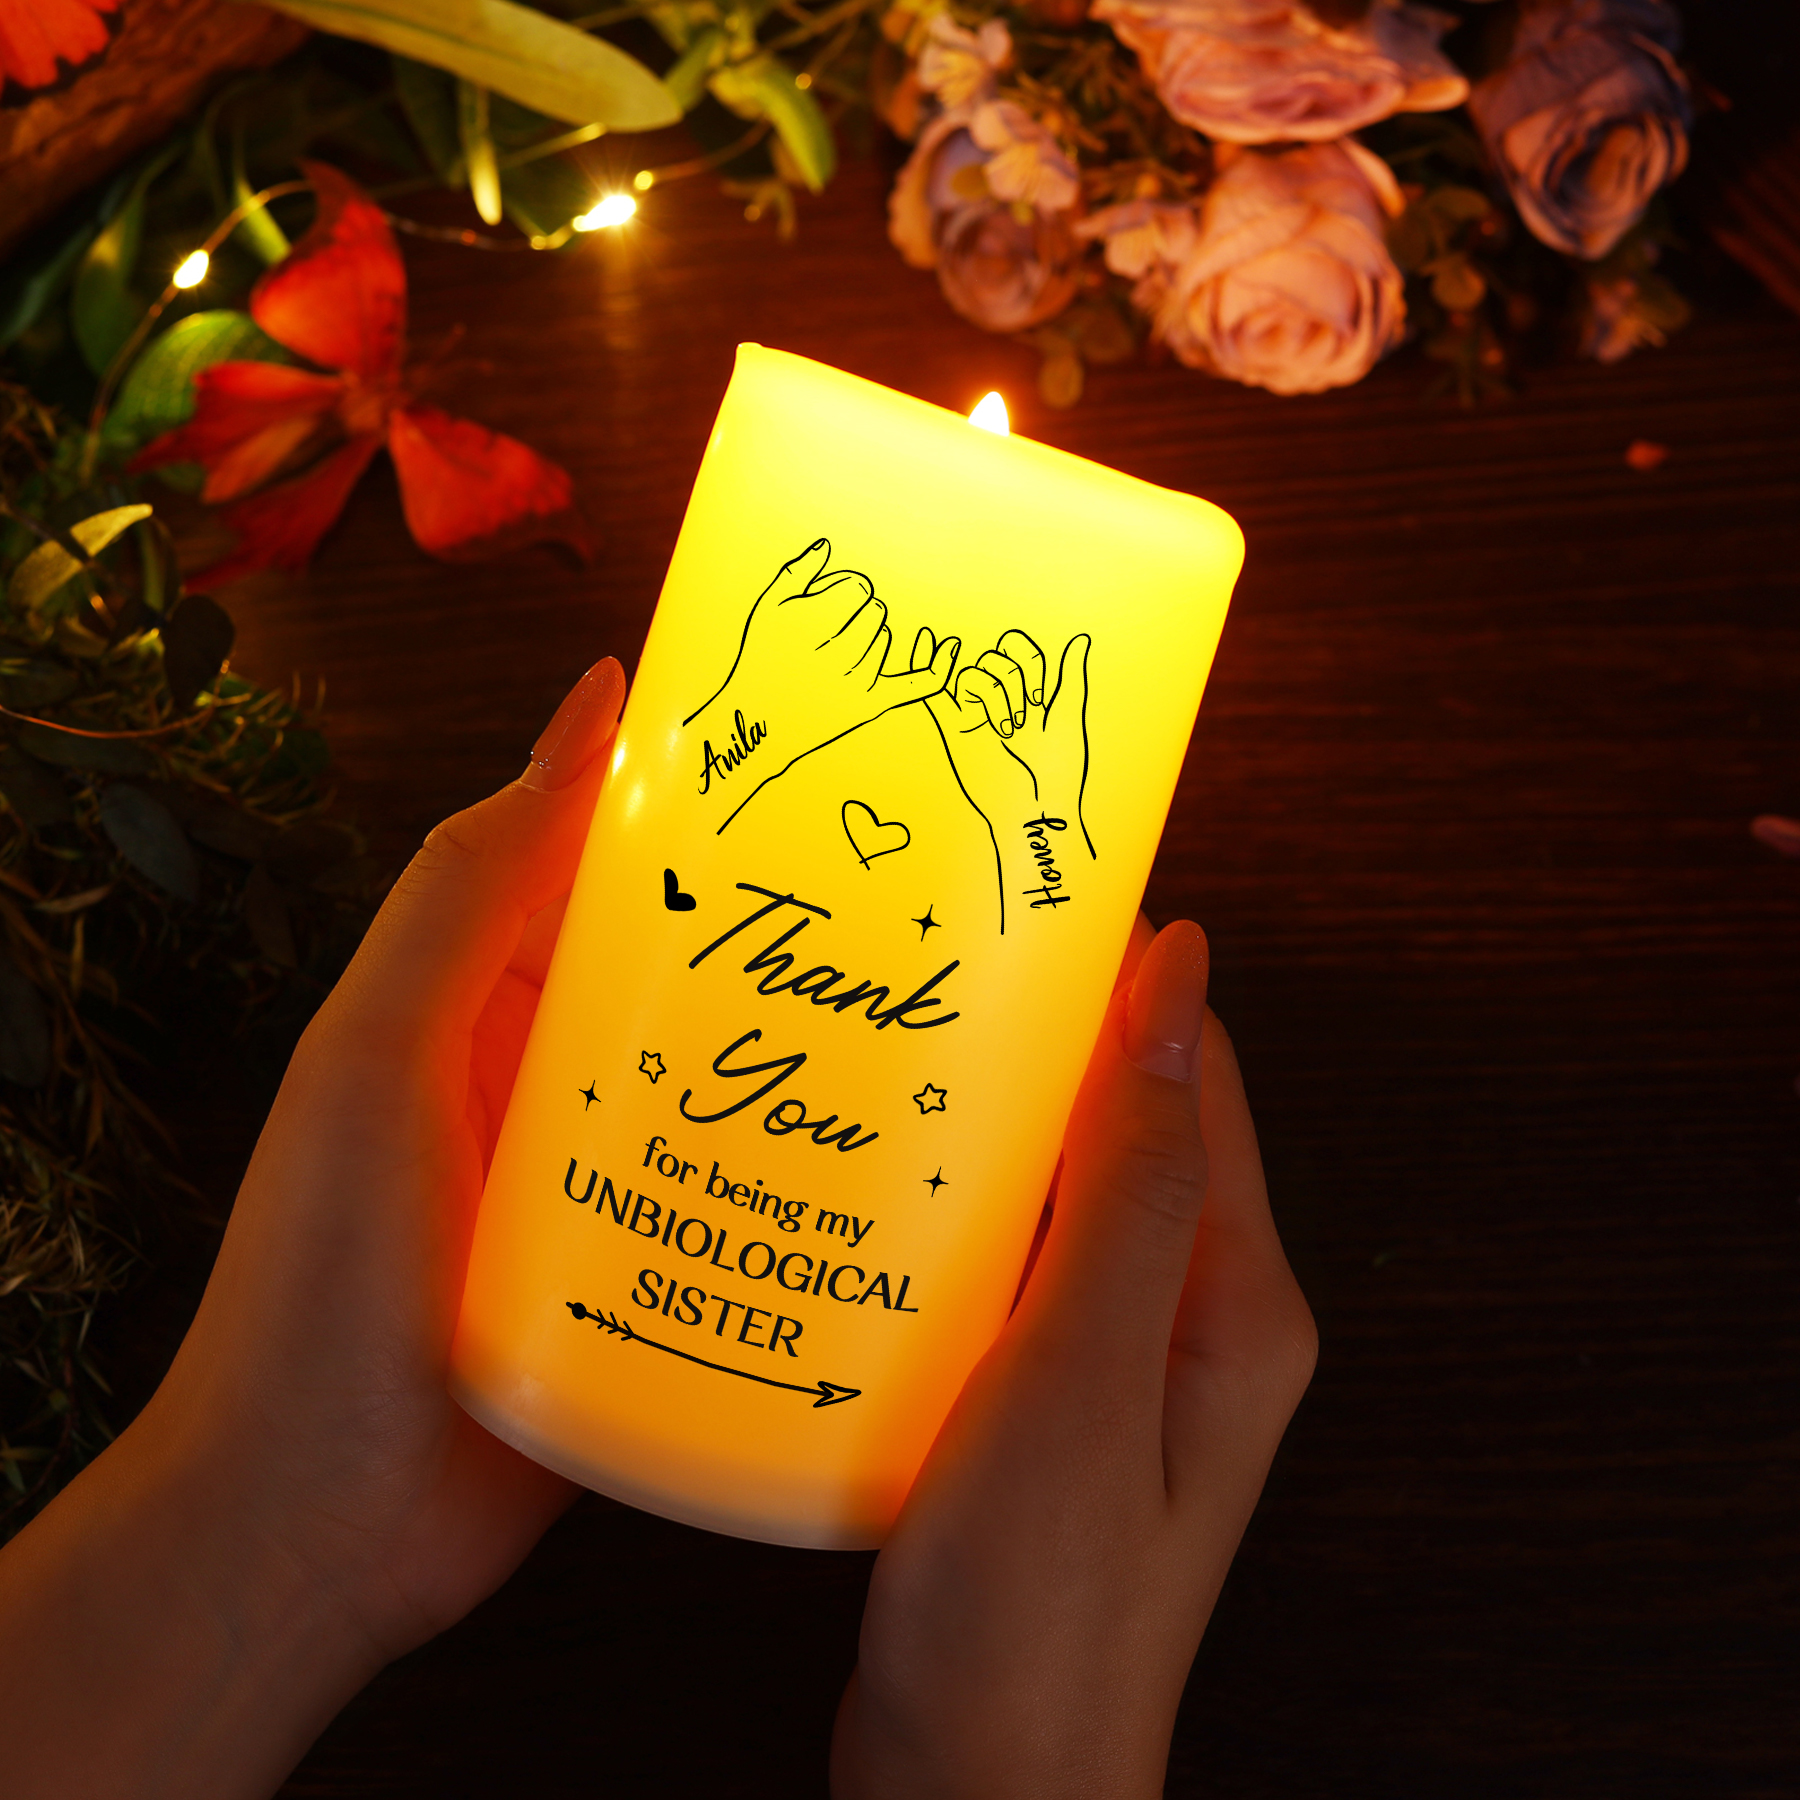 Anila
Honey
Thank
You
for being my
UNBIOLOGICAL
SISTER